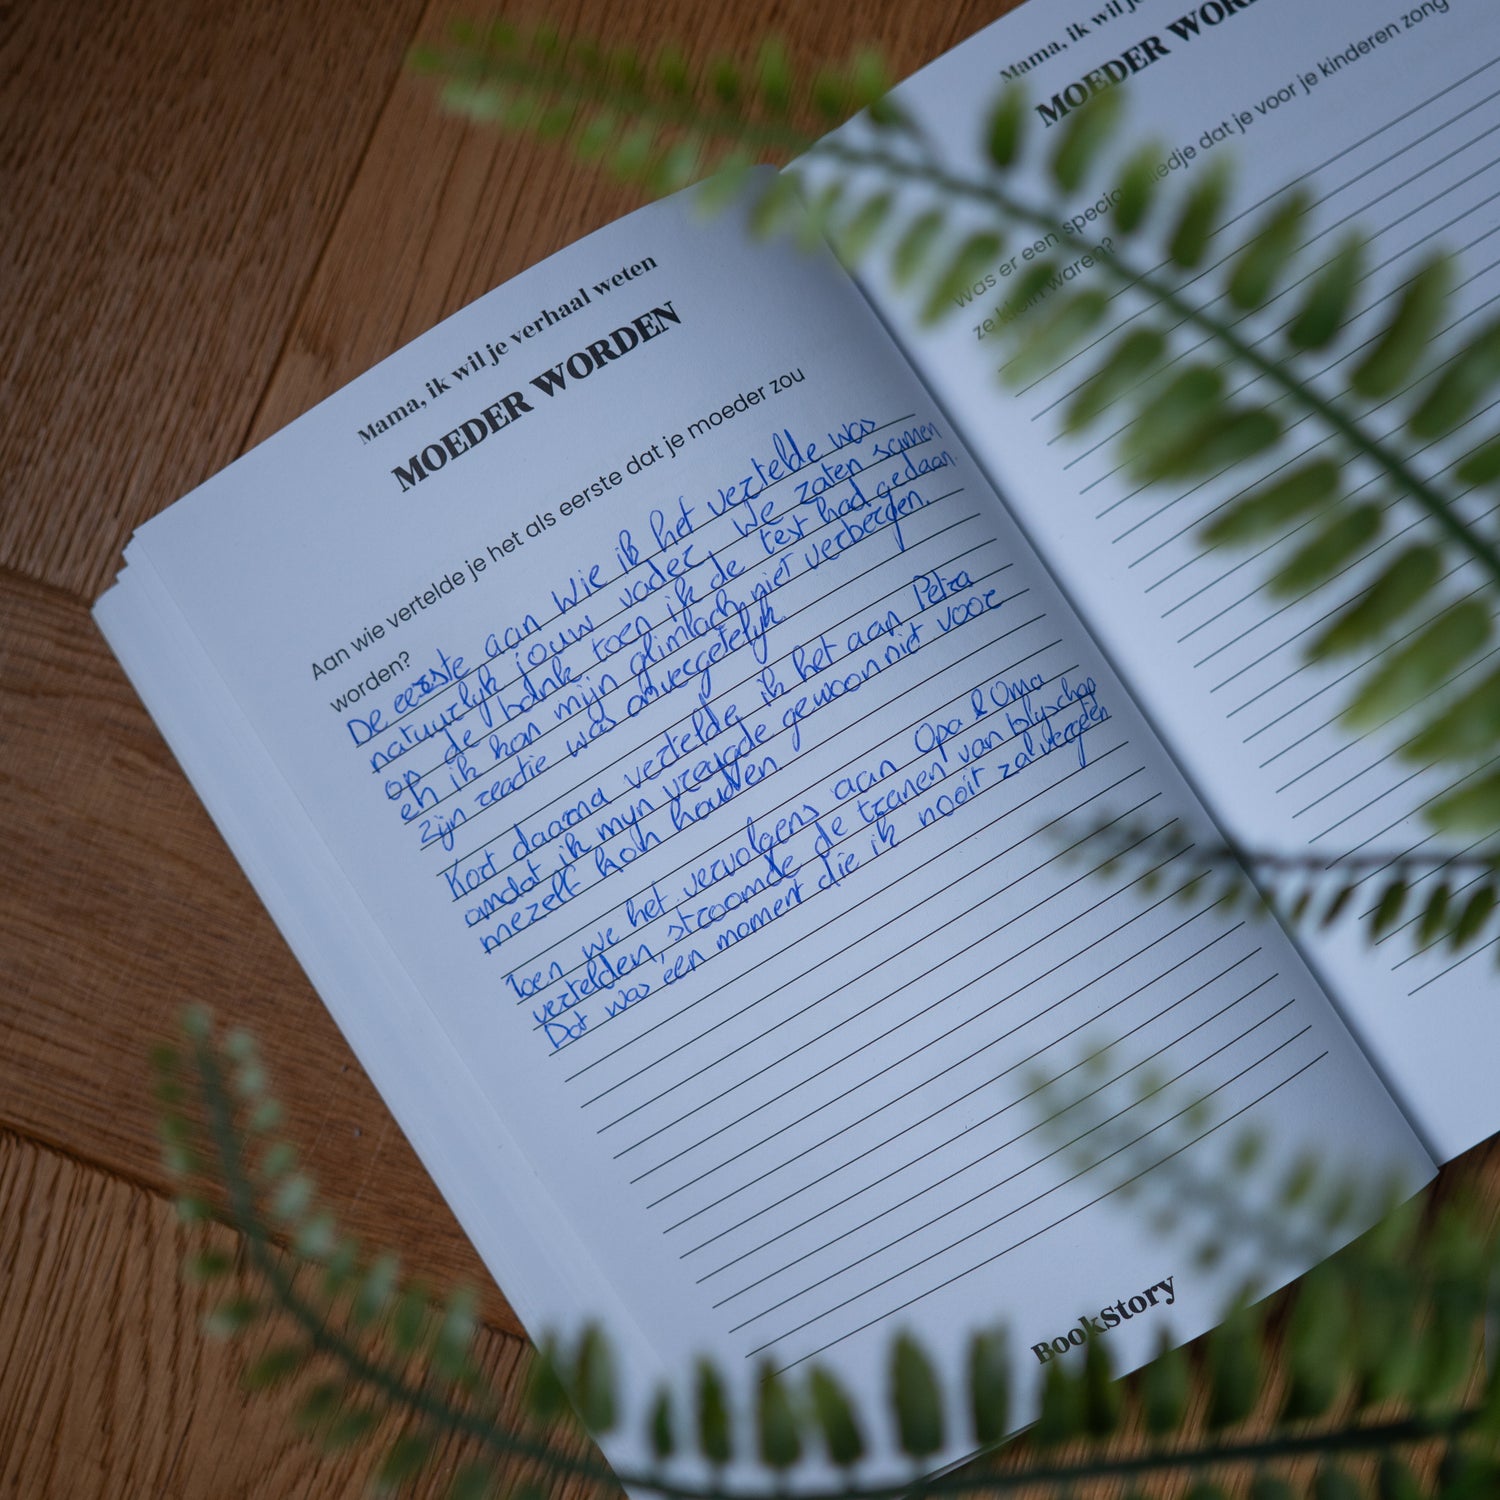 Mama, ik wil je verhaal weten
MOEDER WORDEN
Aan wie vertelde je het als eerste dat je moeder zou
worden?
De eerste aan wie ik het vertelde was
natuurlijk jouw vader, we zaten samen
op de bank toen ik de test had gedaan.
en ik kon mijn glimlach niet verbergen.
Zijn reactie was onvergetelijk
Kort daarna vertelde ik het aan Petra
omdat ik mijn vreugde gewoon niet voor
mezelf kon houden
Toen we het vervolgens aan Opa & Oma
vertelden, stroomde de tranen van blijschap
Dat was een moment die ik nooit zal vergeten
BookStory
Mama, ik wil je
MOEDER
Was er een liedje dat je voor je kinderen zong
ze klein waren?